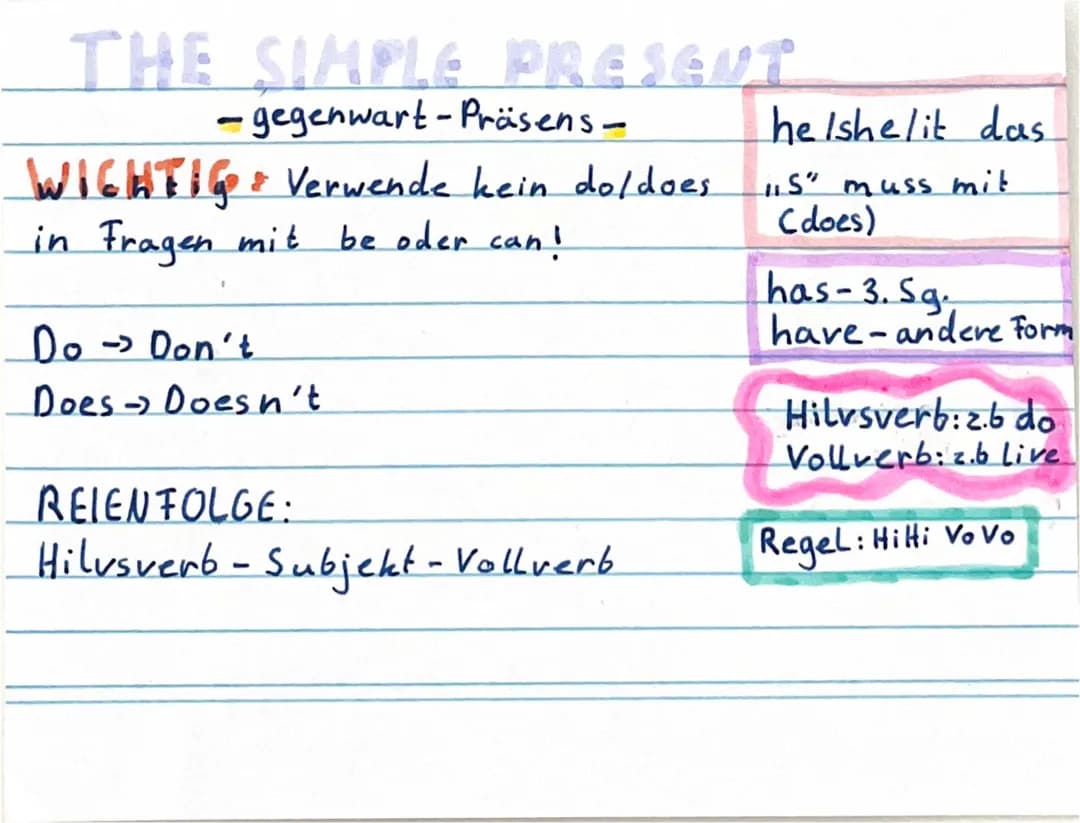 THE SIMPLE PRESENT
- gegenwart - Präsens -
WICHTIG: Verwende kein do/does
in Fragen mit be oder can!
Do → Don't
Does → Doesn't
REIENFOLGE:
Hilvsverb - Subjekt - Vollverb
he/she/it das
„S" muss mit
(does)
has - 3. Sg.
have - andere Form
Hilvsverb: z.b do
Vollverb: z.b live
Regel: HiHi VoVo